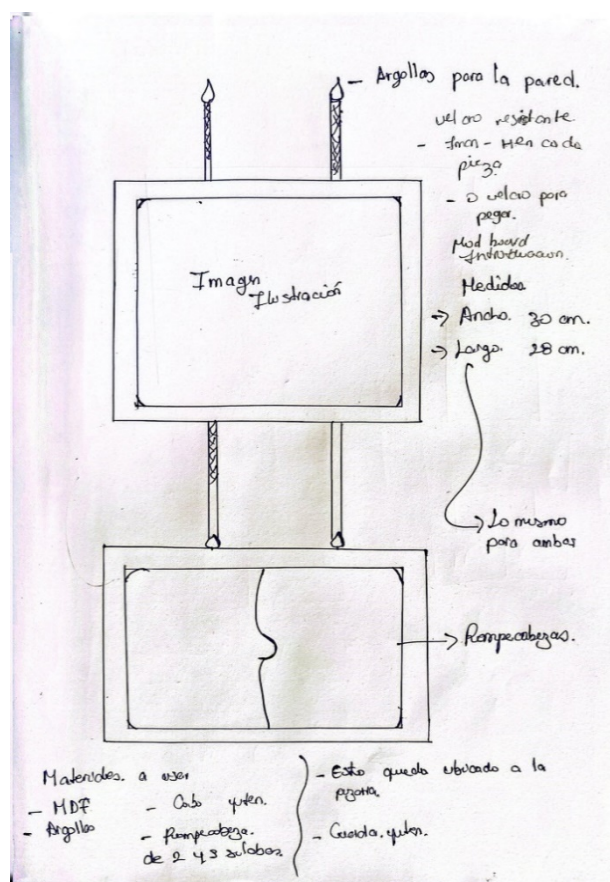 - Argollas para la pared.
velcro resistente
- Iman - en cada
pieza
- o velcro para
pegar.
Medidas
→ Ancho. 30 cm.
→ Largo. 28 cm.
Imagen
Ilustración
→ Lo mismo
para ambas
→ Rompecabezas.
Materiales. a usar
- MDF
- Argollas
- Cabo yuten.
- Rompecabeza.
de 2 y 3 sílabas.
- Esto queda ubicado a la
pizarra.
- Cuerda. yuten.